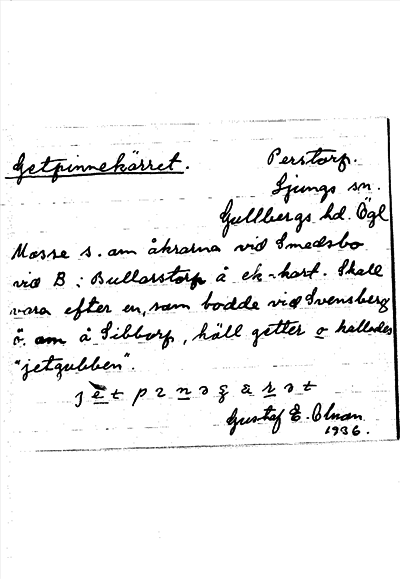 Getpinnekärret.
Perstorp.
Ljungs sn.
Gullbergs hd. Ögl
Mosse s. om åkrarna vid Smedsbo
vid B: Bullarstorp å ek-kart. Skall
vara efter en, som bodde vid Svensberg
ö. om å Sibborp, höll getter o kallades
"jetgubben".
Gustaf E. Olman
1936.